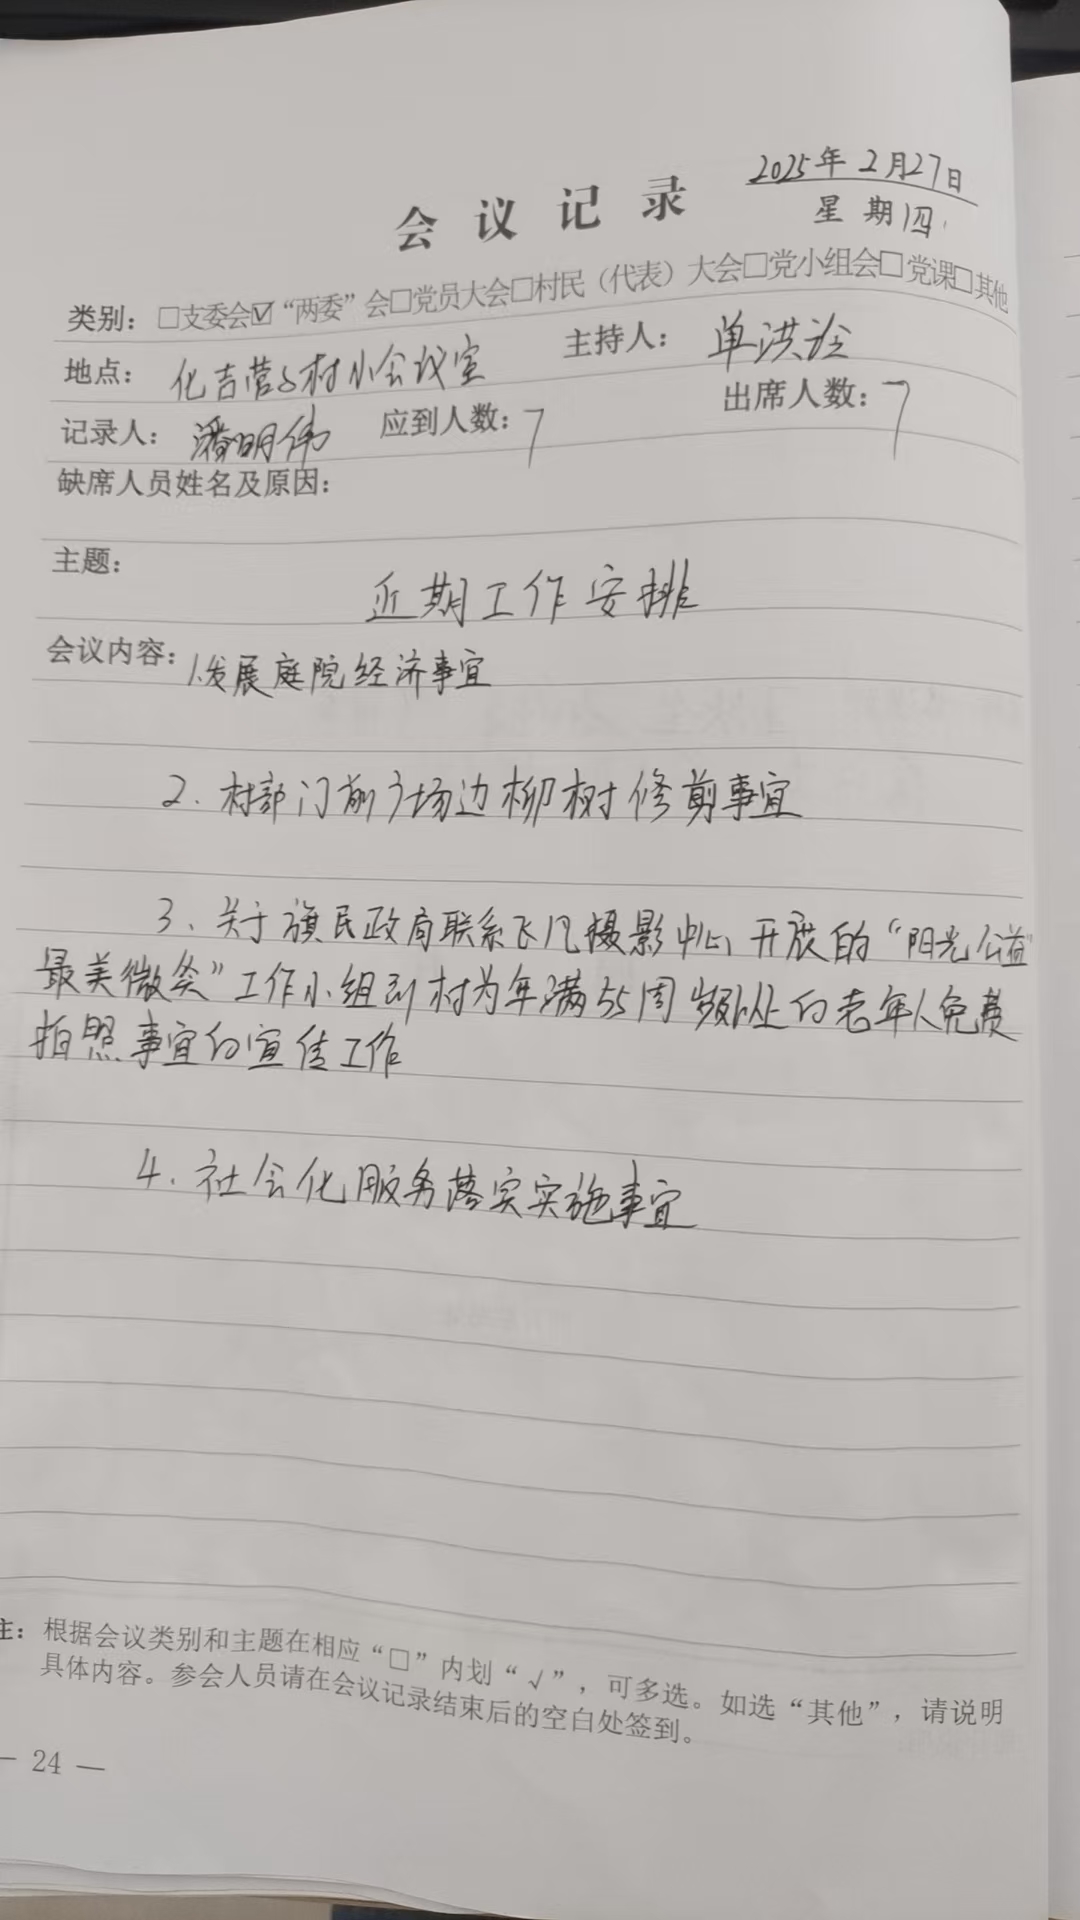 2025年2月27日
会议记录
星期四
类别：□支委会☑“两委”会□党员大会□村民（代表）大会□党小组会□党课□其他
地点：化吉营子村小会议室 主持人：单洪
记录人：潘明伟 应到人数：7 出席人数：7
缺席人员姓名及原因：
主题：
近期工作安排
会议内容：1.发展庭院经济事宜
2.村部门前广场边柳树修剪事宜
3.关于旗民政局联系飞凡摄影中心开展的“阳光公益
最美微笑”工作小组到村为年满55周岁以上的老年人免费
拍照事宜的宣传工作
4.社会化服务落实实施事宜
注：根据会议类别和主题在相应“□”内划“√”，可多选。如选“其他”，请说明
具体内容。参会人员请在会议记录结束后的空白处签到。
— 24 —